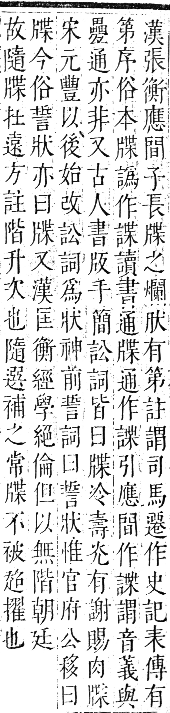 漢張衡應間子長牒之爛肰有第註謂司馬遷作史記表傳有
第序俗本牒譌作諜讀書通牒通作諜引應間作諜謂音義與
疊通亦非又古人書版手簡訟詞皆曰牒冷壽光有謝賜肉牒
宋元豐以後始改訟詞爲狀神前誓詞曰誓狀惟官府公移曰
牒今俗誓狀亦曰牒又漢匡衡經學絕倫但以無階朝廷
故隨牒在遠方註階升次也隨選補之常牒不被超擢也